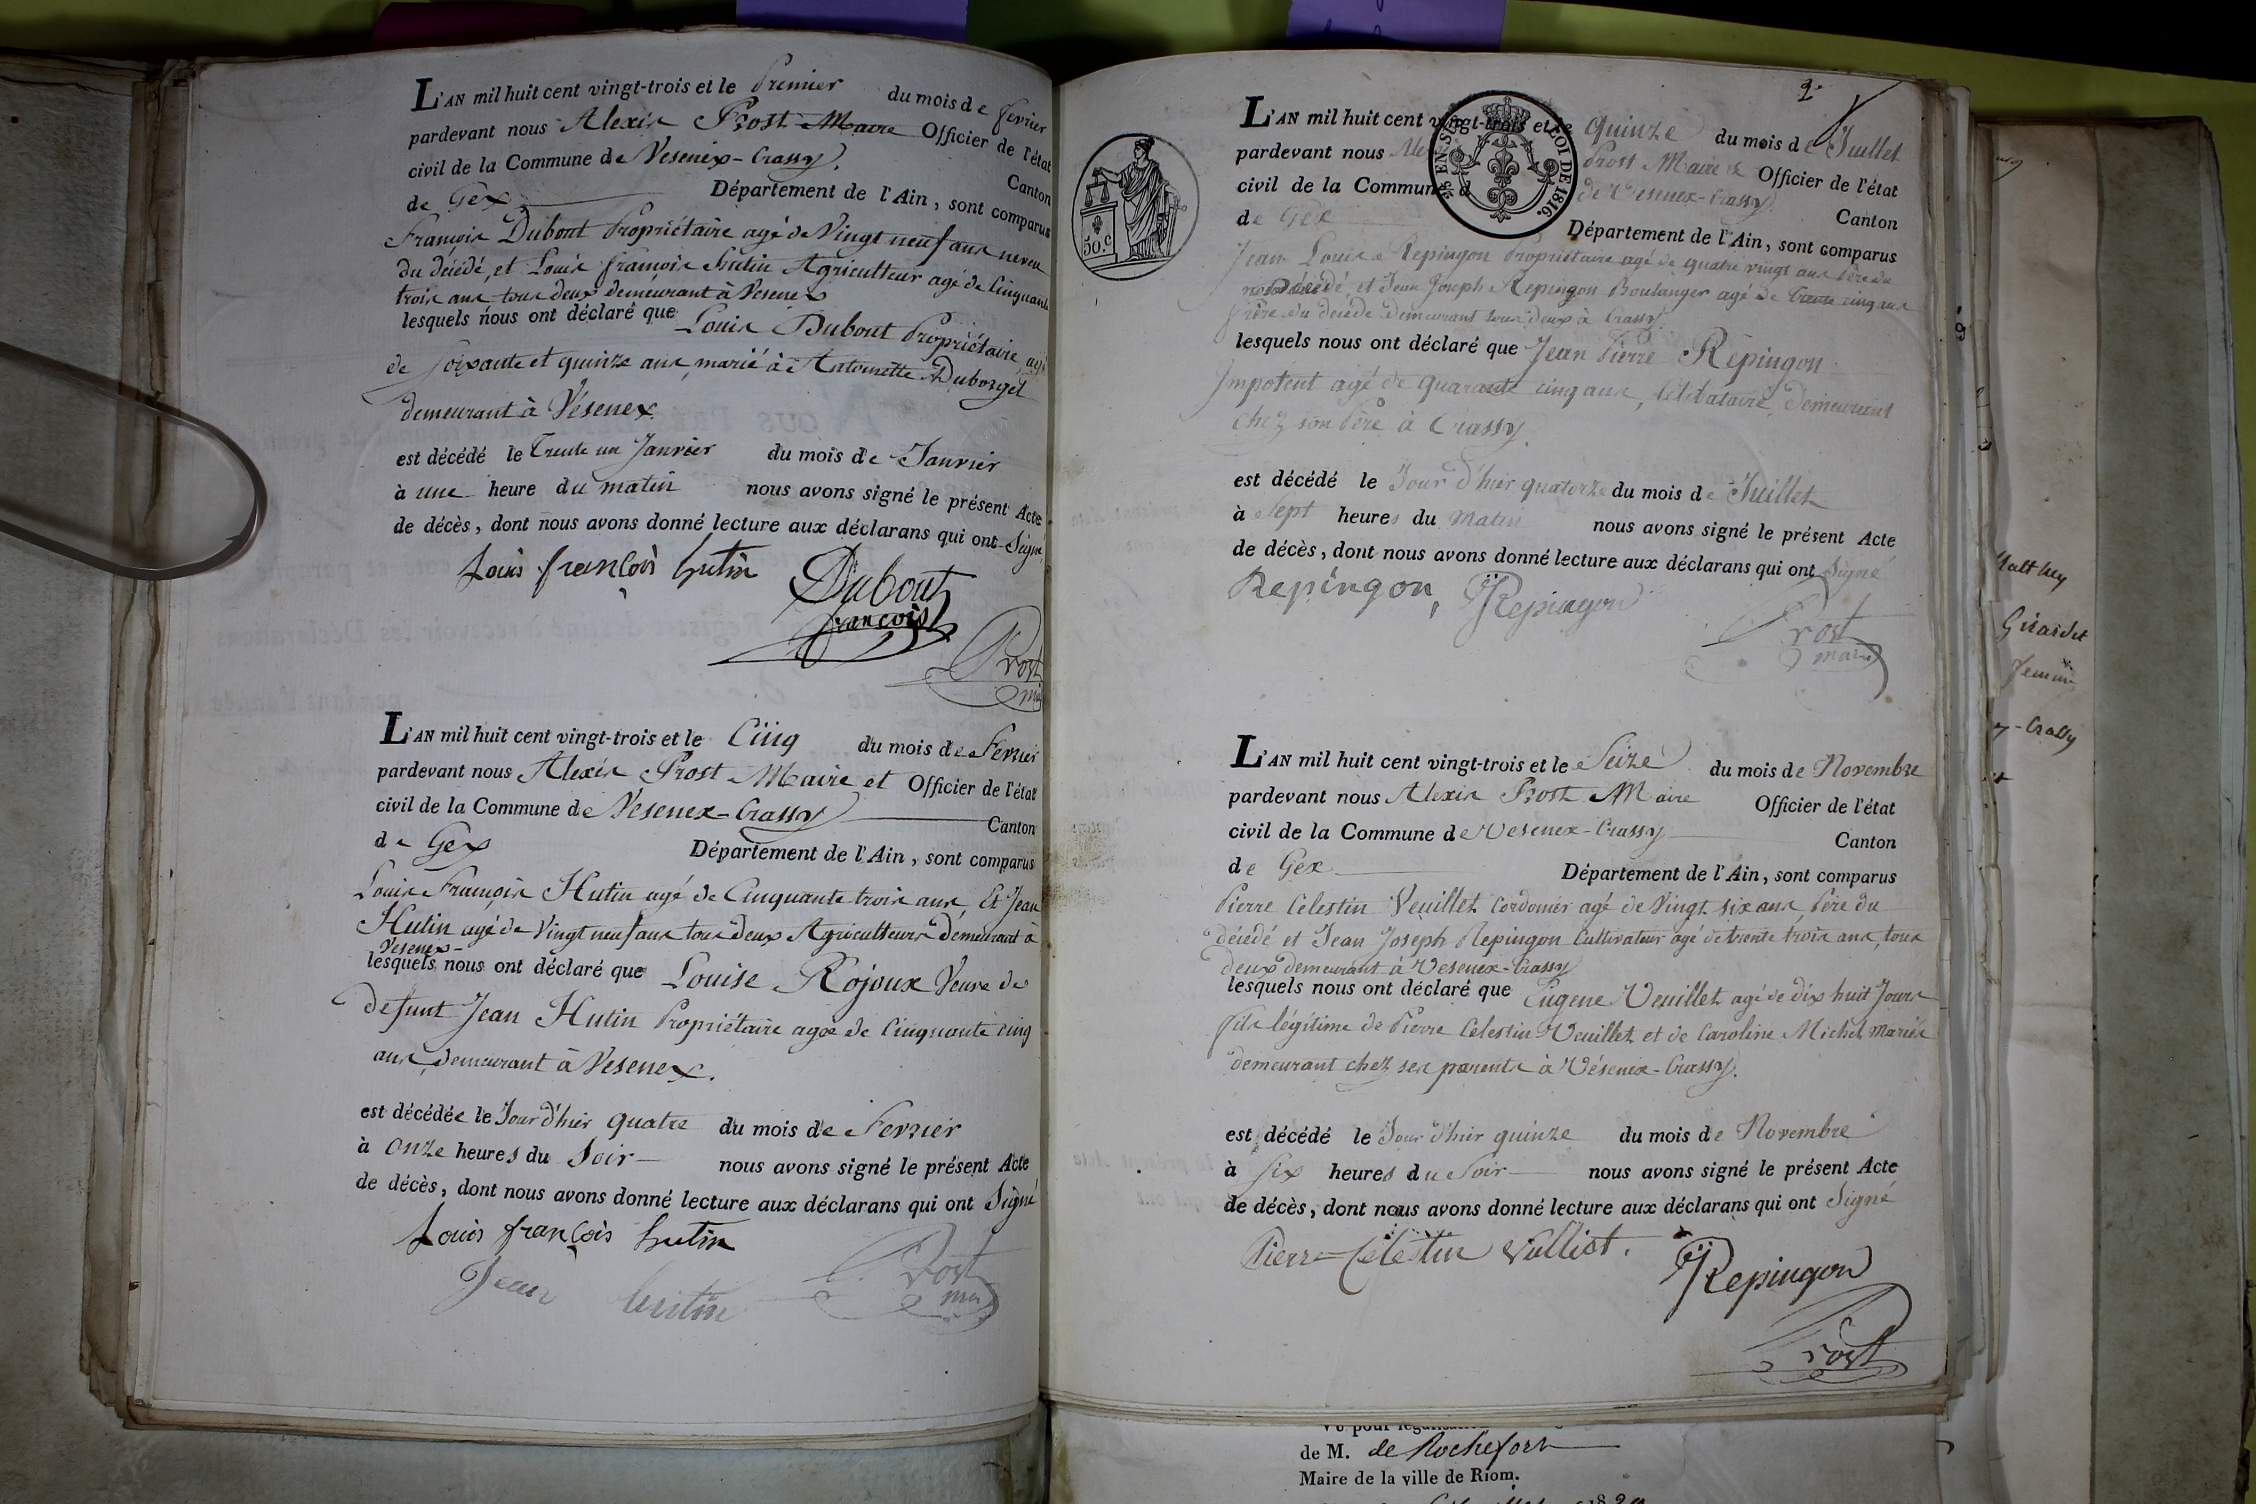 L'AN mil huit cent vingt-trois et le Premier du mois de fevrier
pardevant nous Alexis Prost Maire Officier de l'état
civil de la Commune de Vesenex-Crassy. Canton
de Gex Département de l'Ain, sont comparus
François Dubout Propriétaire agé de Vingt neuf ans neveu
du décédé, et Louis françois hutin Agriculteur agé de Cinquante
trois ans tous deux demeurant à Vesenex
lesquels nous ont déclaré que Louis Dubout Propriétaire, agé
de soixante et quinze ans, marié à Antoinette Duborgel
demeurant à Vésenex.
est décédé le Trente un Janvier du mois de Janvier
à une heure du matin nous avons signé le présent Acte
de décès, dont nous avons donné lecture aux déclarans qui ont Signé
Louis françois hutin Dubout
françois
Prost
L'AN mil huit cent vingt-trois et le Cinq du mois de Fevrier
pardevant nous Alexis Prost Maire et Officier de l'état
civil de la Commune de Vesenex-Crassy Canton
de Gex Département de l'Ain, sont comparus
Louis François Hutin agé de Cinquante trois ans, Et Jean
Hutin agé de Vingt neuf ans tous deux Agriculteurs demeurant à
Vesenex-
lesquels nous ont déclaré que Louise Rojoux Veuve de
defunt Jean Hutin Propriétaire agée de Cinquante cinq
ans, demeurant à Vesenex.
est décédée le Jour d'hier quatre du mois de Fevrier
à onze heures du Soir nous avons signé le présent Acte
de décès, dont nous avons donné lecture aux déclarans qui ont Signé
Louis françois hutin
Jean hutin Prost
2
L'AN mil huit cent vingt-trois et le quinze du mois de Juillet
pardevant nous Prost Maire & Officier de l'état
civil de la Commune de Vesenex-Crassy Canton
de Gex Département de l'Ain, sont comparus
LOI DE 1816.
50.c
Jean Louis Repingon Propriétaire agé de quatre vingt ans Père du
décédé, et Jean Joseph Repingon Boulanger agé de trente cinq ans
frère du décédé demeurant tous deux à Crassy
lesquels nous ont déclaré que Jean Pierre Répingon
Impotent agé de quarante cinq ans, Célibataire, demeurant
chez son Père à Crassy.
est décédé le Jour d'hier quatorze du mois de Juillet
à Sept heures du Matin nous avons signé le présent Acte
de décès, dont nous avons donné lecture aux déclarans qui ont Signé
Repingon, JJRepingon
Prost
maire
L'AN mil huit cent vingt-trois et le Seize du mois de Novembre
pardevant nous Alexis Prost Maire Officier de l'état
civil de la Commune de Vesenex-Crassy Canton
de Gex Département de l'Ain, sont comparus
Pierre Celestin Veuillet Cordonier agé de Vingt six ans, Père du
décédé et Jean Joseph Repingon Cultivateur agé de trente trois ans, tous
deux demeurant à Vesenex-Crassy
lesquels nous ont déclaré que Eugene Veuillet agé de dix huit Jours
fils légitime de Pierre Celestin Veuillet et de Caroline Michel mariés
demeurant chez ses parents à Vésenex-Crassy.
est décédé le Jour d'hier quinze du mois de Novembre
à Six heures du Soir nous avons signé le présent Acte
de décès, dont nous avons donné lecture aux déclarans qui ont Signé
Pierre Célestin Vulliet. JJRepingon
Prost
de M. de Rochefort
Maire de la ville de Riom.
Girardet